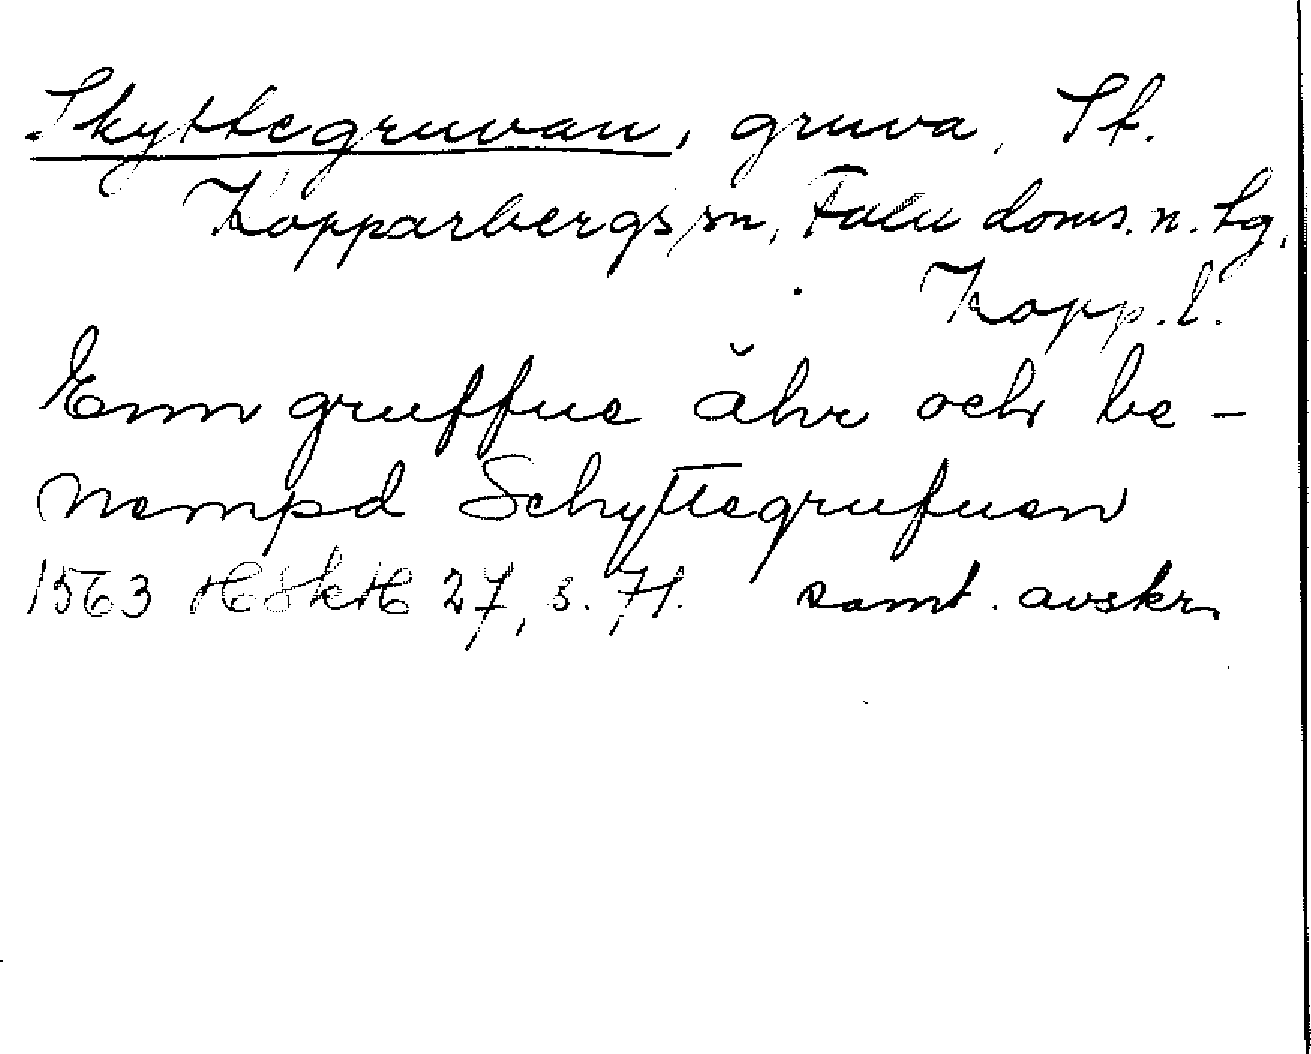 Skyttegruvan, gruva, St.
Kopparbergs sn, Falu doms. n. tg,
Kopp. l.
Enn gruffue ähr och be-
nempd Schyttegrufuen
1563 HSkH 27, s. 71. samt. avskr.